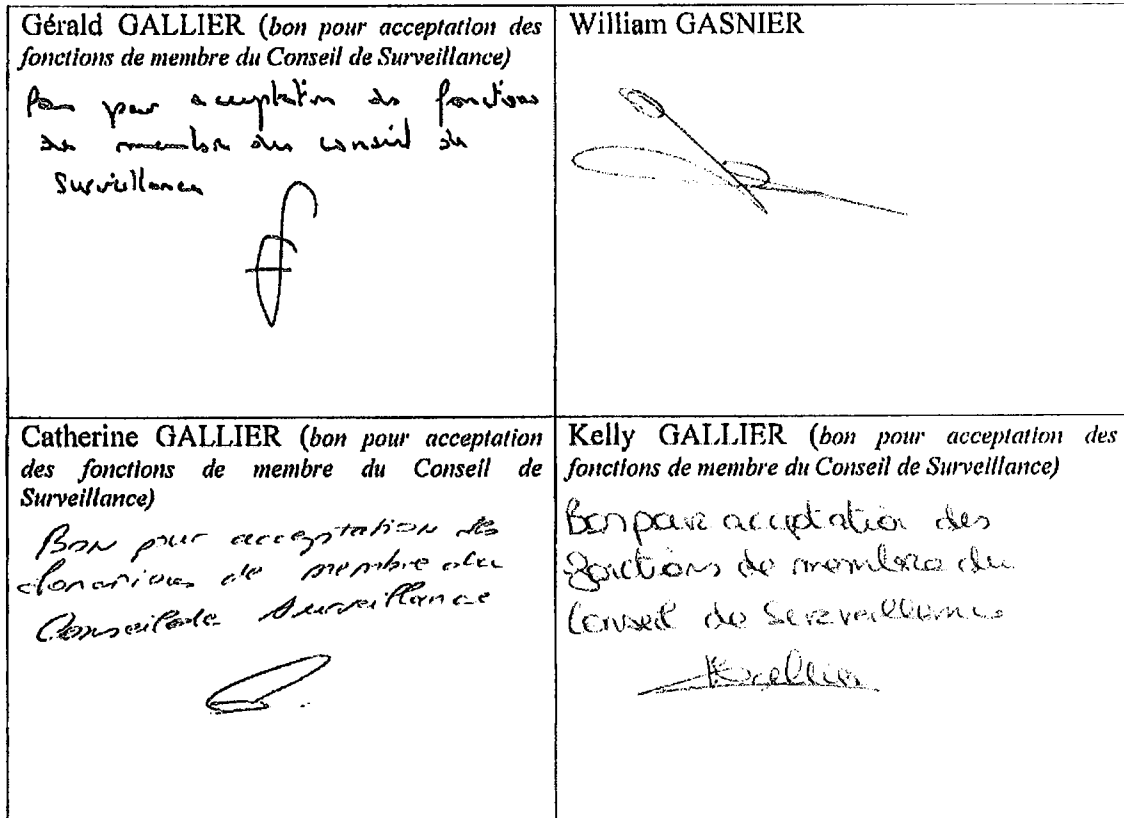 Gérald GALLIER (bon pour acceptation des
fonctions de membre du Conseil de Surveillance)
Bon pour acceptation des fonctions
de membre du conseil de
Surveillance
William GASNIER
Catherine GALLIER (bon pour acceptation
des fonctions de membre du Conseil de
Surveillance)
Bon pour acceptation des
de membre du
Conseil de Surveillance
Kelly GALLIER (bon pour acceptation des
fonctions de membre du Conseil de Surveillance)
Bon pour acceptation des
fonctions de membre du
Conseil de Surveillance
KGallier